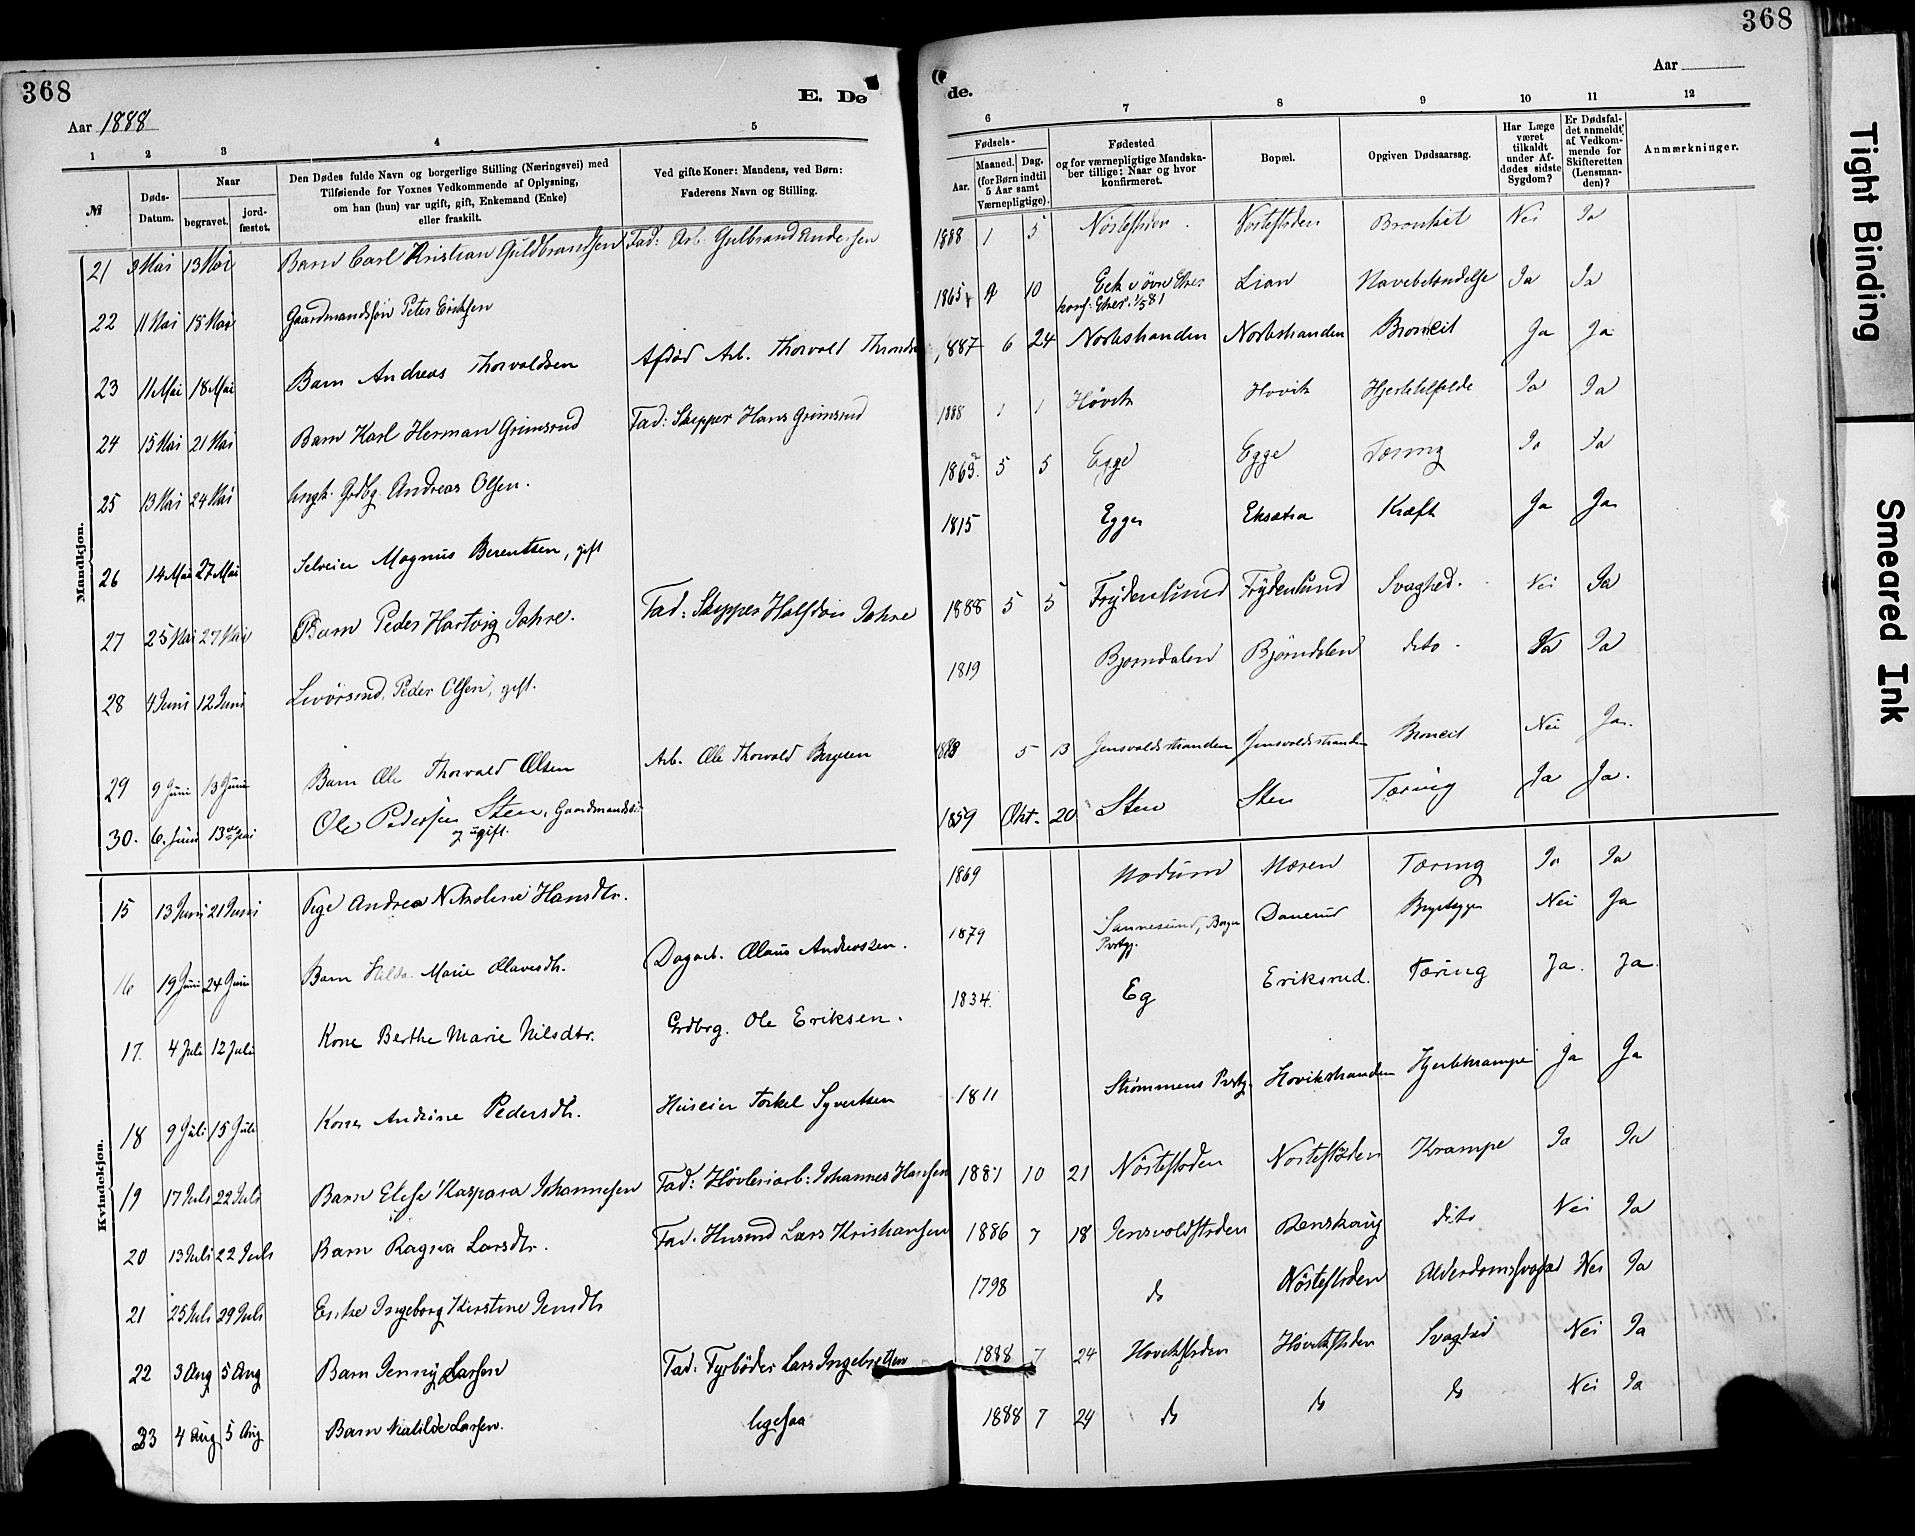 368
368
E. De
de.
Aar 1888
Aar
1 2 3 4 5 6 7 8 9 10 11 12
№
Døds-Datum.
Naar
begravet.
jord-fæstet.
Den Dødes fulde Navn og borgerlige Stilling (Næringsvei) med
Tilføiende for Voxnes Vedkommende af Oplysning,
om han (hun) var ugift, gift, Enkemand (Enke)
eller fraskilt.
Ved gifte Koner: Mandens, ved Børn:
Faderens Navn og Stilling.
Fødsels-
Aar.
Maaned.
Dag.
(for Børn indtil
5 Aar samt
Værnepligtige).
Fødested
og for værnepligtige Mandska-
ber tillige: Naar og hvor
konfirmeret.
Bopæl.
Opgiven Dødsaarsag.
Har Læge
været
tilkaldt
under Af-
dødes sidste
Sygdom?
Er Dødsfal-
det anmeldt
af Vedkom-
mende for
Skifteretten
(Lensman-
den)?
Anmærkninger.
Mandkjøn.
21 9 Mai 13 Mai Barn Carl Kristian Guldbrandsen Fad: Arb. Gulbrand Andersen 1888 1 5 Nöstestrden Bronkit Nei Ja
22 11 Mai 18 Mai Gaardmandssøn Peter Eriksen 1865 9 10 Eek i øvre Eker Lian Navebetændelse Ja Ja
konf: Eker
23 11 Mai 18 Mai Barn Andreas Thorvaldsen Afdød Arb. Thorvald 1887 6 24 Nordstranden Nordstranden Broncit Ja Ja
24 15 Mai 21 Mai Barn Karl Herman Grimsrud Fad: Skipper Hans Grimsrud 1888 1 1 Høvik Hovik Hjertetilfelde Ja Ja
25 13 Mai 24 Mai Ungk. Grdbg. Andreas Olsen. 5 5 Egge Egge Tæring Ja Ja
26 14 Mai 27 Mai Selveier Magnus Berentsen, gift 1815 Egge Eksætra Kræft Ja Ja
27 25 Mai 27 Mai Barn Peder Hartvig Jahre. Fad: Skipper Halfdan Jahre 1888 5 5 Frydenlund Frydenlund Svaghed. Nei Ja
28 4 Juni 12 Juni Peder Olsen, gift. 1819 Bjorndalen Björndalen dito Ja
29 9 Juni 13 Juni Barn Ole Thorvald Olsen Arb. Ole Thorvald Bergesen 1888 5 13 Jensvoldstranden Jensvoldstranden Broncit Nei Ja.
30. 6. Juni 13de Ole Pedersen Sten, Gaardmandssøn 1859 Okt. 20 Sten Sten Tæring Ja Ja.
ugift.
Kvindekjøn.
15 13 Juni 21 Juni Pige Andrea Nikoline Hansdtr. 1869 Modum Mæren Tæring Ja Ja
16 19 Juni 24 Juni Barn Hilda Marie Olavesdtr. Dagarb. Olaus Andreassen. 1879 Sannesund, Danerud Nei Ja
Prstgj.
17. 4 Juli 12 Juli Kone Berthe Marie Nilsdtr. Grdbrg. Ole Eriksen. 1834. Eg Eriksrud. Tæring Ja. Ja.
18 9 Juli 15 Juli Kone Andrine Pedersdtr. Huseier Torkel Syvertsen 1811 Strømmens Prstgj. Hovikstranden Hjertekrampe Ja Ja
19 17 Juli 22 Juli Barn Elise Kaspara Johannesen Fad: Høvleriarb: Johannes Hansen 1887 10 21 Nöstestrden Nostestrden Krampe Ja Ja
20 13 Juli 22 Juli Barn Ragna Larsdtr. Fad. Husmd Lars Kristiansen 1886 7 18 Jensvoldstrden Renskaug dito Nei Ja
21 25 Juli 29 Juli Enke Ingeborg Kirstine Jensdtr 1798 do Nöstestrden Alderdomssvaghed Nei Ja
22 3 Aug 5 Aug Barn Jenny Larsen Fad: Fyrbøder Lars Ingebretsen 1888 7 24 Hovikstrden Høvikstrden Svaghed Nei Ja
23 4 Aug 5 Aug Barn Matilde Larsen. ligesaa 1888 7 24 do do do Nei Ja
Tight Binding
Smeared Ink